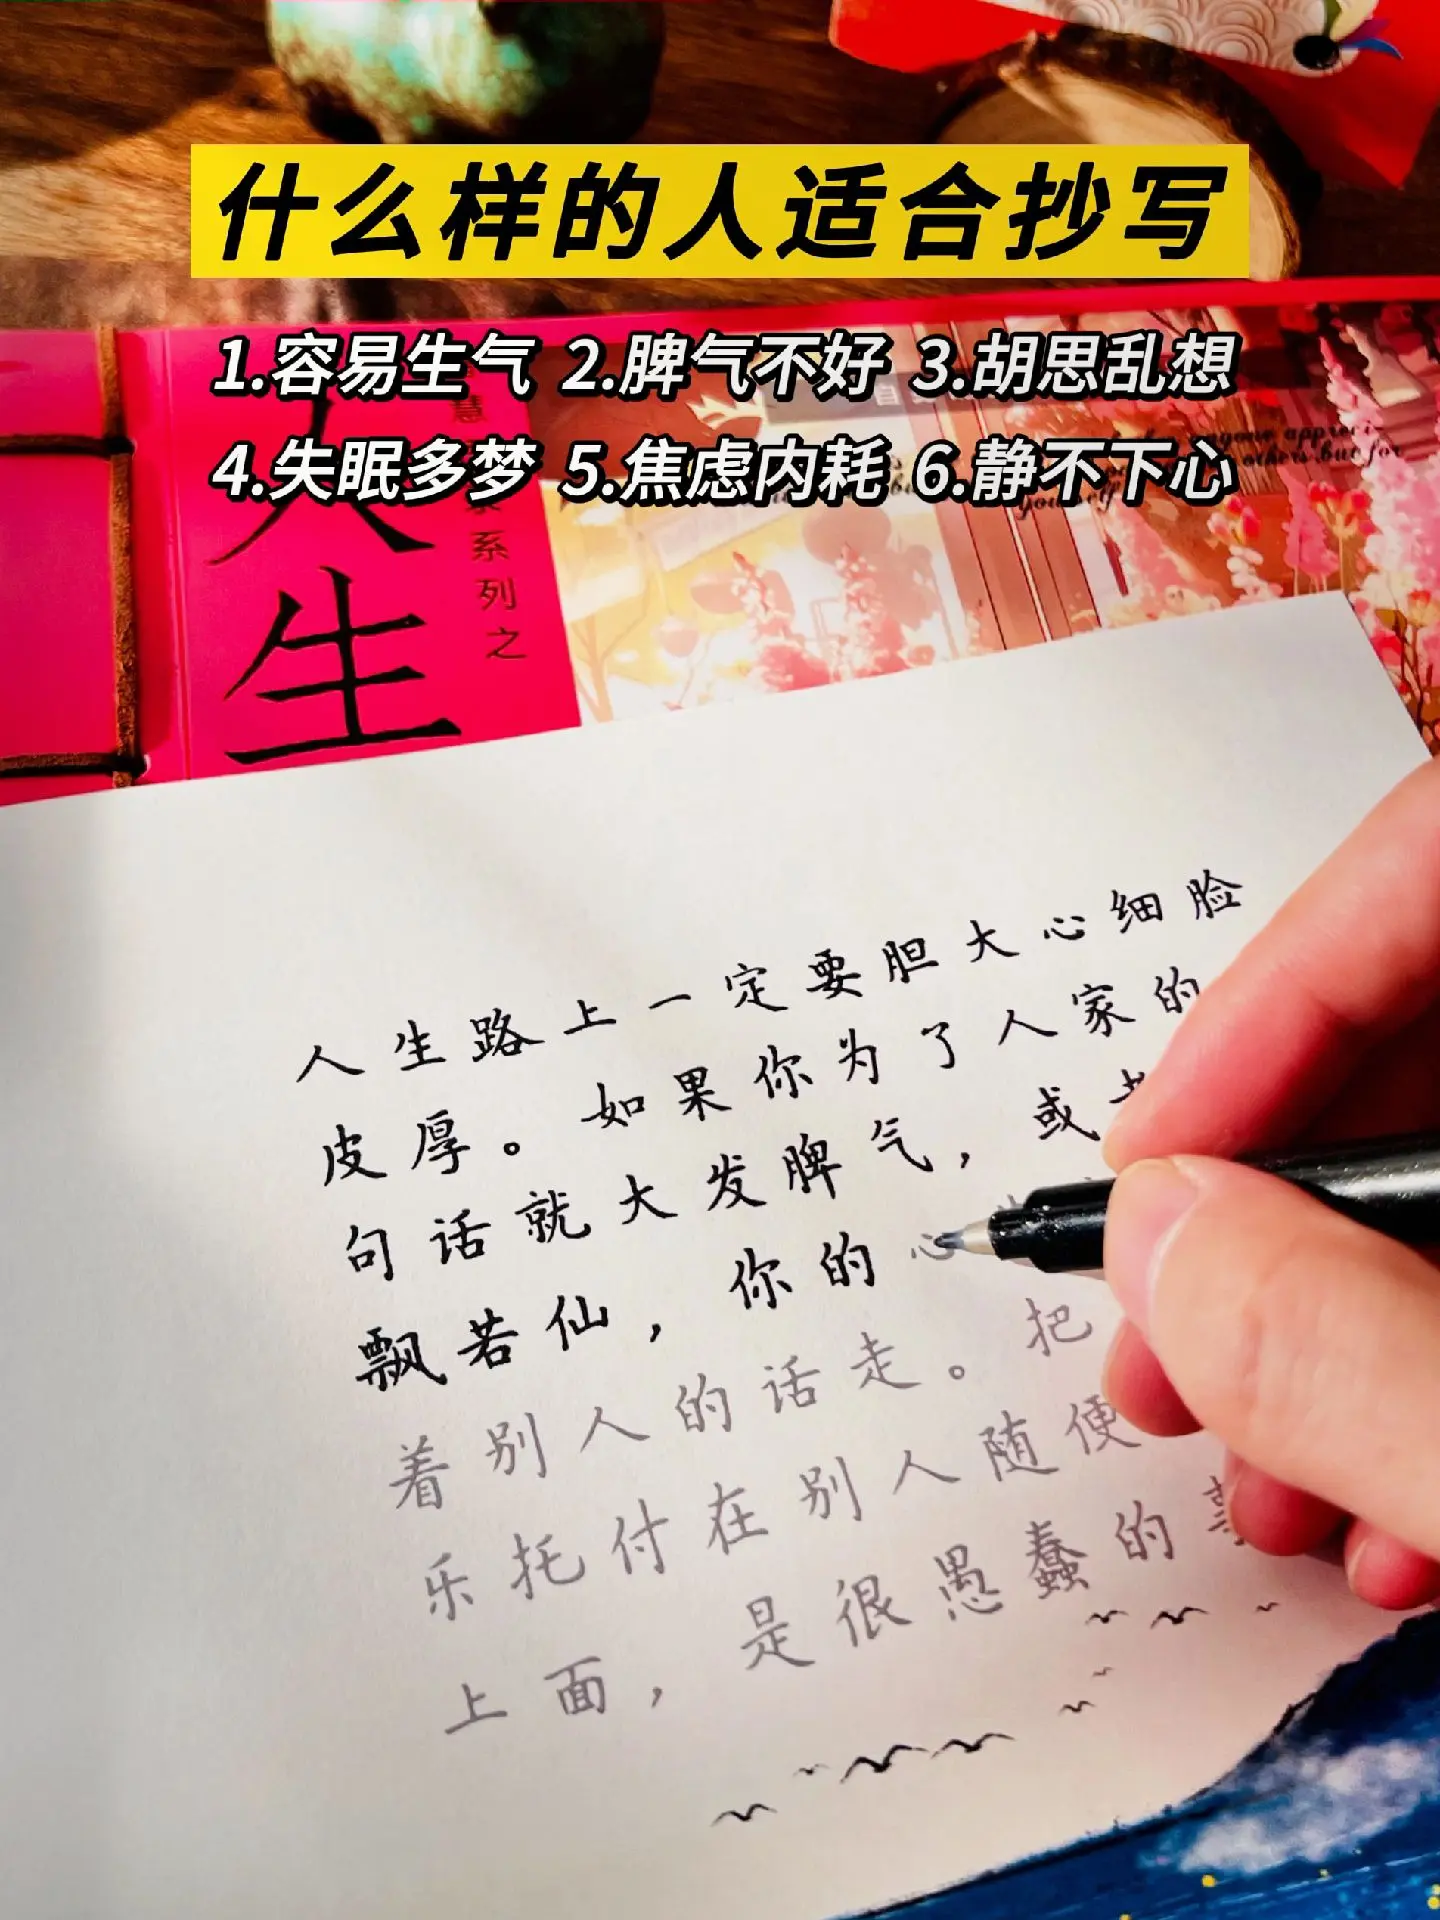 什么样的人适合抄写
1.容易生气 2.脾气不好 3.胡思乱想
4.失眠多梦 5.焦虑内耗 6.静不下心
人生
慧
系列之
自
others but for
yourself
人生路上一定要胆大心细脸
皮厚。如果你为了人家的
句话就大发脾气，或
飘若仙，你的心
着别人的话走。把
乐托付在别人随便
上面，是很愚蠢的事